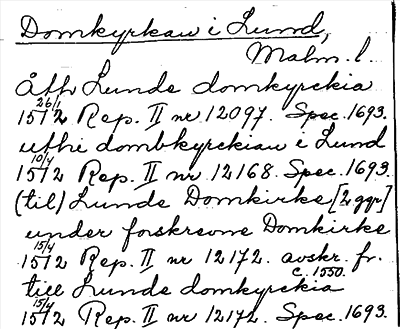 Domkyrkan i Lund,
Malm. l.
åth Lunde domkyrckia
26/1
1512 Rep. II nr 12097. Spec. 1693.
uthi dombkyrckian i Lund
10/4
1512 Rep. II nr 12168. Spec. 1693.
(till) Lunde Domkirke [2 ggr]
under forskrevne Domkirke
15/4
1512 Rep. II nr 12172. avskr. fr.
c. 1550.
till Lunde domkyrckia
15/4
1512 Rep. II nr 12172. Spec. 1693.